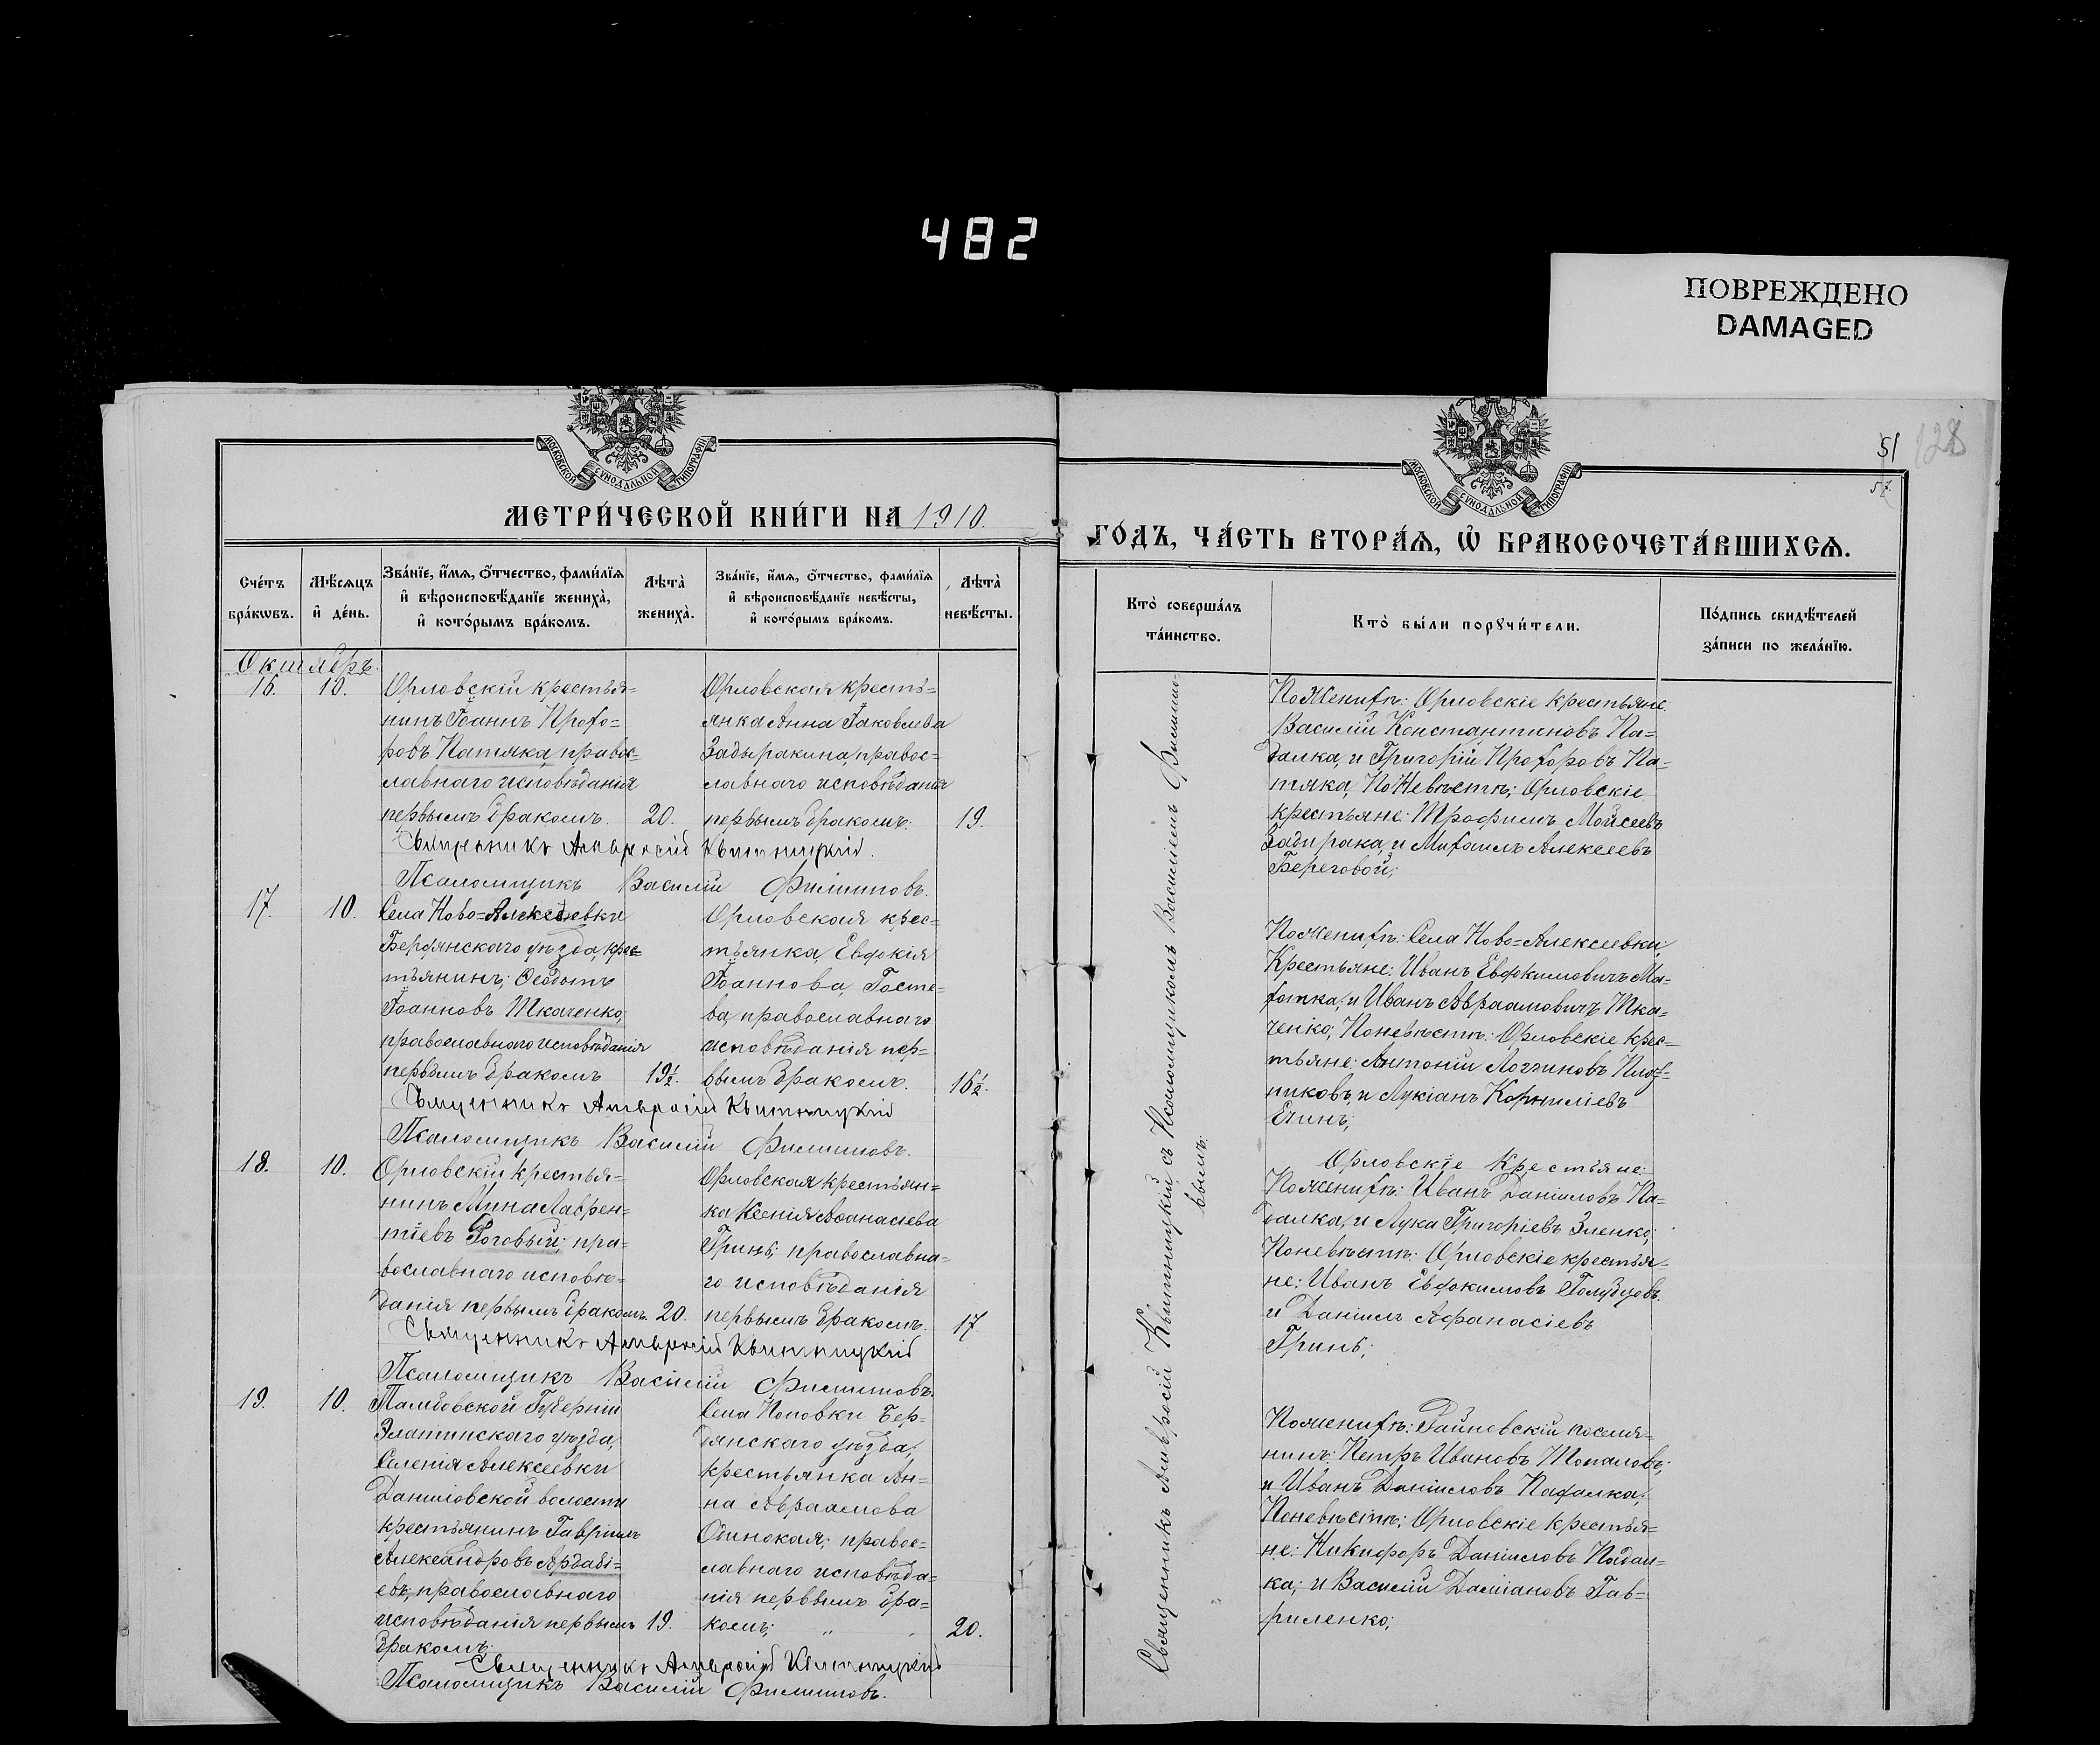 482
ПОВРЕЖДЕНО
DAMAGED
МОСКОВСКОЙ СѴНОДАЛЬНОЙ ТИПОГРАФІИ
МЕТРИ́ЧЕСКОЙ КНИ́ГИ НА 1910.
Сче́тъ бра́кωвъ.
Мѣ́сяцъ и҆ де́нь.
Зва́нїе, и҆́мѧ, ѻ҆́тчество, фами́лїѧ
и҆ вѣроисповѣ́данїе жениха̀,
и҆ кото́рымъ бра́комъ.
Лѣта̀ жениха̀.
Зва́нїе, и҆́мѧ, ѻ҆́тчество, фами́лїѧ
и҆ вѣроисповѣ́данїе невѣ́сты,
и҆ кото́рымъ бра́комъ.
Лѣта̀ невѣ́сты.
Октябрь.
16.
10.
Орловскій крестья=
нинъ Іоаннъ Прохо=
ровъ Патяка, правос=
лавнаго исповѣданія
первымъ бракомъ.
20.
Орловская кресть=
янка Анна Іаковлева
Задыракина, правос=
лавнаго исповѣданія
первымъ бракомъ.
19.
Священникъ Амвросій Квитницкій.
Псаломщикъ Василій Филипповъ.
17.
10.
Села Ново=Алексѣевки
Бердянскаго уѣзда, крес=
тьянинъ, Ѳеодотъ
Іоанновъ Ткаченко,
православнаго исповѣданія
первымъ бракомъ
19½.
Орловская крес=
тьянка, Евдокія
Іоаннова, Госте=
ва, православнаго
исповѣданія пер=
вымъ бракомъ.
16½.
Священникъ Амвросій Квитницкій
Псаломщикъ Василій Филипповъ.
18.
10.
Орловскій крестья=
нинъ Мина Лаврен=
тіевъ Роговый; пра=
вославнаго исповѣ=
данія первымъ бракомъ.
20.
Орловская крестьян=
ка Ксенія Аѳанасіева
Гринь; православна=
го исповѣданія
первымъ бракомъ.
17
Священникъ Амвросій Квитницкій
Псаломщикъ Василій Филипповъ.
19.
10.
Тамбовской Губерніи
Елатинскаго уѣзда,
Селенія Алексеевки
Даниловской волости
крестьянинъ Гавріилъ
Александровъ
православнаго
исповѣданія первымъ
бракомъ;
19.
Села Поповки Бер=
дянскаго уѣзда,
крестьянка Ан=
на Авраамова
Одинокая; правос=
лавнаго исповѣда=
нія первымъ бра=
комъ;
20.
Священникъ Амвросій Квитницкій
Псаломщикъ Василій Филипповъ.
51
128
МОСКОВСКОЙ СѴНОДАЛЬНОЙ ТИПОГРАФІИ
ГО́ДЪ, ЧА́СТЬ ВТОРА́Ѧ, Ѽ БРАКОСОЧЕТА́ВШИХСѦ.
Кто̀ соверша́лъ
та́инство.
Кто̀ бы́ли порꙋчи́тели.
По́дпись свидѣ́телей
за́писи по жела́нїю.
Священникъ Амвросій Квитницкій съ Псаломщикомъ Василіемъ Филиппо=
вымъ.
По Женихѣ: Орловскіе крестьяне
Василій Константиновъ Па=
далка, и Григорій Прохоровъ Па=
тяка, По Невѣстѣ; Орловскіе
крестьяне: Трофимъ Мойсеевъ
Задирака, и Михаилъ Алексеевъ
Береговой;
По женихѣ: Села Ново=Алексеевки,
Крестьяне: Иванъ Евдокимовичъ Ма=
хотка, и Иванъ Авраамовичъ Тка=
ченко; По невѣстѣ: Орловскіе крес=
тьяне: Антоній Логгиновъ
и Лукіанъ Корниліевъ
Орловскіе Крестьяне:
По женихѣ: Иванъ Даніиловъ Па=
далка, и Лука Григоріевъ Зленко;
По невѣстѣ: Орловскіе крестья=
не: Иванъ Евдокимовъ Голубцовъ.
и Даніилъ Афанасіевъ
Гринь;
По женихѣ: поселя=
нинъ: Петръ Ивановъ Топаловъ;
и Иванъ Даніиловъ Падалка;
По невѣстѣ; Орловскіе крестья=
не: Никифоръ Даніиловъ Падал=
ка; и Василій Даміановъ Гав=
риленко;